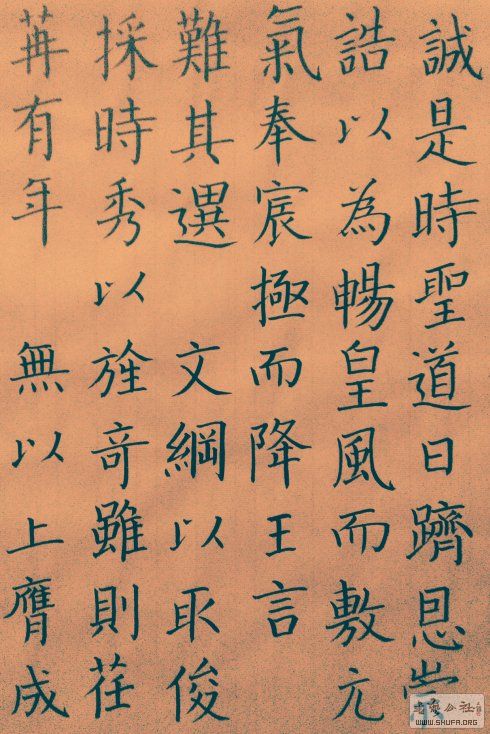 誠是時聖道日躋恩
誥以為暢皇風而敷元
氣奉宸極而降王言
難其選 文綱以取俊
採時秀以旌奇雖則荏
苒有年 無以上膺成
WWW.SHUFA.ORG